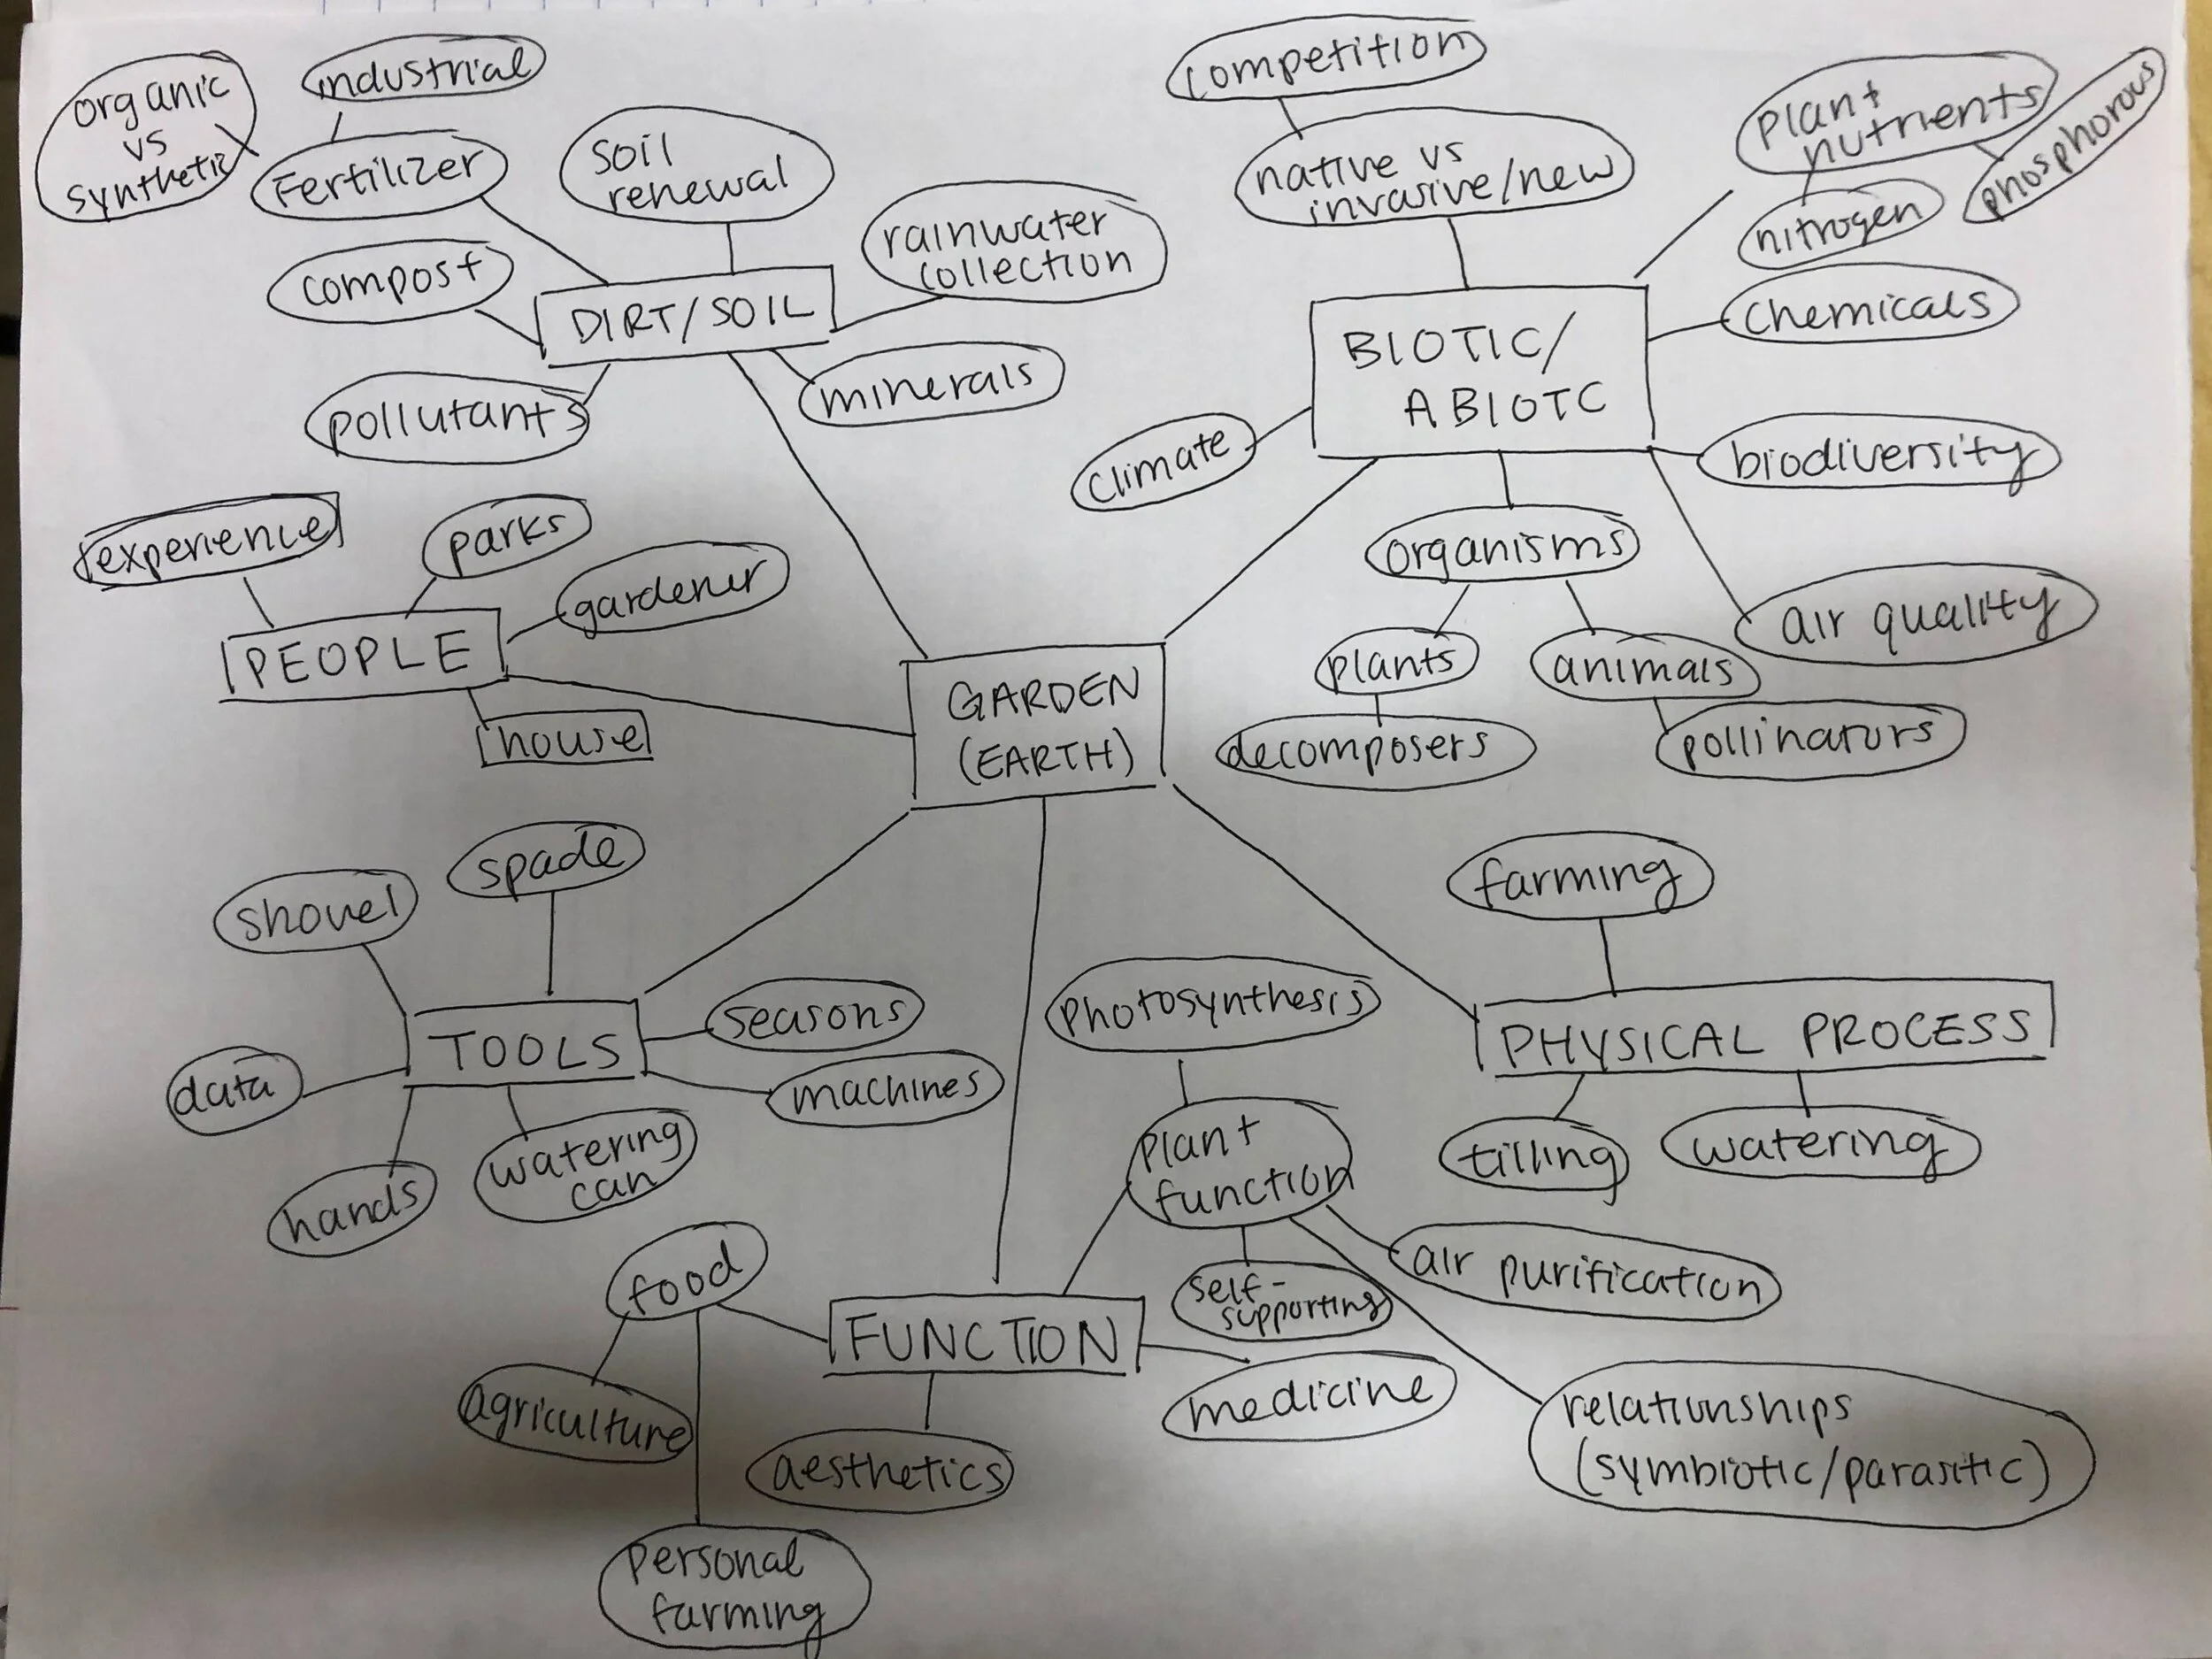 organic
vs
synthetic
industrial
Fertilizer
soil
renewal
rainwater
collection
compost
DIRT/SOIL
pollutants
minerals
competition
native vs
invasive/new
plant
nutrients
phosphorous
nitrogen
chemicals
BIOTIC/
ABIOTC
climate
biodiversity
organisms
air quality
plants
animals
decomposers
pollinators
experience
parks
gardener
PEOPLE
house
GARDEN
(EARTH)
spade
shovel
TOOLS
seasons
machines
data
hands
watering
can
farming
PHYSICAL PROCESS
tilling
watering
photosynthesis
plant
function
self-
supporting
air purification
relationships
(symbiotic/parasitic)
food
FUNCTION
medicine
agriculture
aesthetics
personal
farming